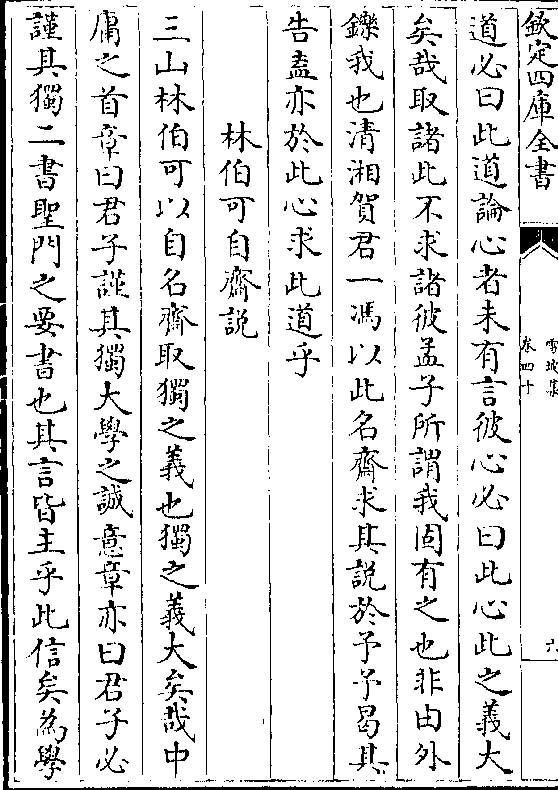 欽定四庫全書
雪坡集
卷四十
六
道必曰此道論心者未有言彼心必曰此心此之義大
矣哉取諸此不求諸彼孟子所謂我固有之也非由外
鑠我也清湘賀君一馮以此名齋求其說於予予曷其
告盍亦於此心求此道乎
林伯可自齋説
三山林伯可以自名齋取獨之義也獨之義大矣哉中
庸之首章曰君子謹其獨大學之誠意章亦曰君子必
謹其獨二書聖門之要書也其言皆主乎此信矣為學